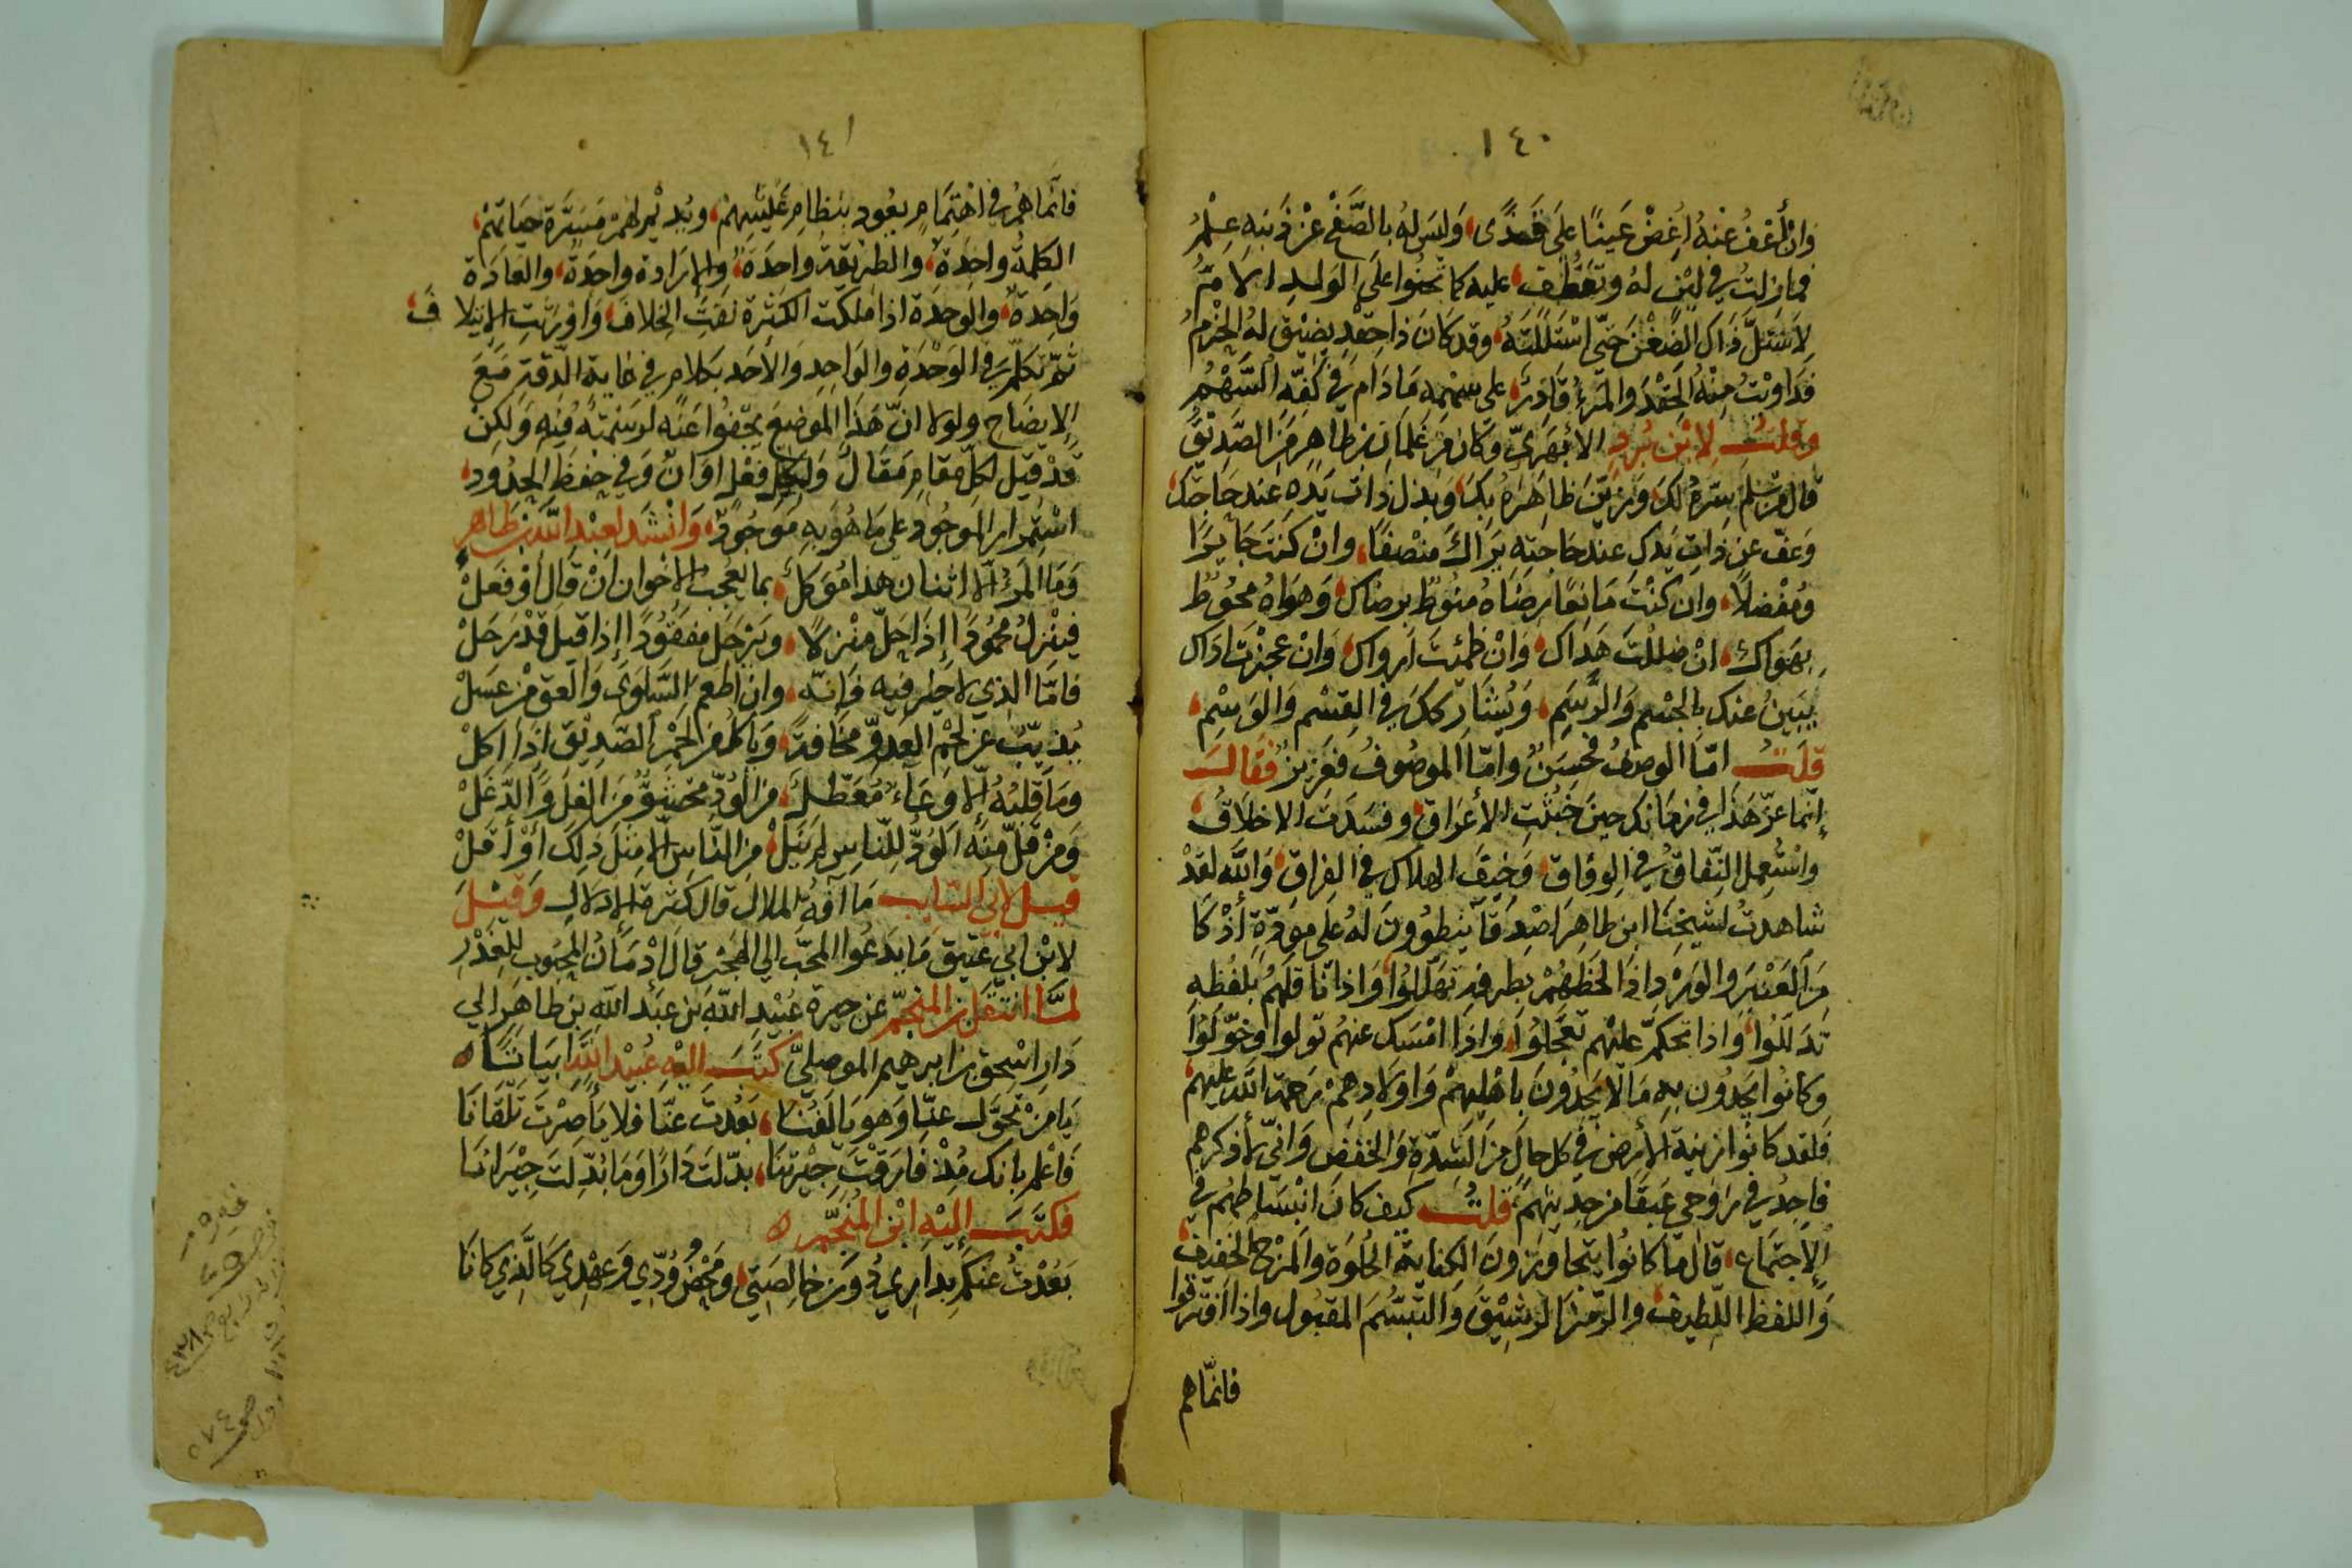 ١٤٠
وان أعف عنه أغض عينا على قذى وليس له بالصفح عن ذنبه علم
فما زلت في لين له وتعطف عليه كما تحنوا على الولد الام
لاستل ذاك الضغن حتى استللته وقد كان ذا حقد يضيق له الجرم
فداويت منه الحقد والمرء قادر على سهمه ما دام في كفه السهم
وقلت لابن برد الأبهري وكان من غلمان بن طاهر من الصديق
قال من سلم سره لك وزين ظاهره بك وبذل ذات يده عند حاجتك
وعف عن ذات يدك عند حاجته يراك منصفا وان كنت جايرا
ومفضلا وان كنت مانعا رضاه منوط برضاك وهواه محوط
بهواك ان ضللت هداك وان ظمئت ارواك وان عجزت اداك
يبين عنك بالجسم والرسم ويشاركك في القسم والوسم
قلت اما الوصف فحسن واما الموصوف فعزيز فقال
إنما عز هذا في زمانك حين خبثت الأعراق وفسدت الاخلاق
واستعمل النفاق في الوفاق وخيف الهلاك في الفراق والله لقد
شاهدت لشيخنا ابن طاهر اصدقا ينطوون له على مودة أذكا
من العنبر والورد اذا لحظهم بطرفه تهللوا واذا ناقلهم بلفظه
تدللوا واذا تحكم عليهم تعجلوا واذا امسك عنهم تولوا وخولوا
وكانوا يجدون به مالا يجدون باهليهم واولادهم رحمة الله عليهم
فلقد كانوا زينة الأرض في كل حال من الشدة والخفض واني لأذكرهم
فاجد في روحي عبقا من حديثهم قلت كيف كان انبساطهم في
الاجتماع قال ما كانوا يتجاوزون الكفاية الحلوة والمزح الخفيف
واللفظ اللطيف والرمز الرشيق والتبسم المقبول واذا افترقوا
فانما هم
١٤١
فانما هم في اهتمام يعود بنظام عيشهم ويديم لهم مسرة حياتهم
الكلمة واحدة والطريقة واحدة والإرادة واحدة والعادة
واحدة والوحدة اذا ملكت الكثرة نفت الخلاف واورثت الايتلاف
ثم تكلم في الوحدة والواحد والأحد بكلام في غاية الدقة مع
الايضاح ولولا ان هذا الموضع يجفوا عنه لرسمته فيه ولكن
قد قيل لكل مقام مقال ولكل فعل اوان وفي حفظ الحدود
استمرار الموجود على ما هو به موجود وانشد لعبد الله بن طاهر
وما المرء الا اثنان هذا موكل بما يعجب الاخوان ان قال أو فعل
فينزل محمودا إذا حل منزلا ويرحل مفقودا إذا قيل قد رحل
فاما الذي لا خير فيه فانه وان اطعم السلوى والعق من عسل
يذبب عن لحم العدو مخافة ويأكل من لحم الصديق اذا اكل
وما قلبه إلا وعاء معطل من الود محشو من الغل والدغل
ومن قل منه الود للناس لم ينل من الناس الا مثل ذلك أو أقل
قيل لابي السايب ما آفة الملال قال كثرة الادلال وقيل
لابن ابي عتيق ما يدعوا المحب الي الهجر قال ادمان المحبوب للغدر
لما انتقل بن المنجم عن جيرة عبيد الله بن عبد الله بن طاهر الي
دار اسحق بن ابرهيم الموصلي كتب اليه عبيد الله ابياتا
يا من تحول عنا وهو يالفنا بعدت عنا فلايا صرت تلقانا
فاعلم بانك مذ فارقت جيرتنا بدلت دارا وما بدلت جيرانا
فكتب إليه ابن المنجم
بعدت عنكم بداري دون خالصتي ومحض ودي وعهدي كالذي كانا